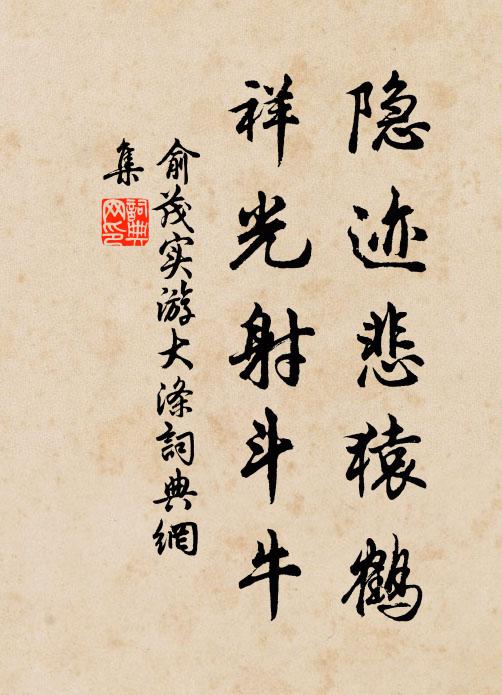 隐迹悲猿鹤
祥光射斗牛
俞茂实游大涤詞典網
集
詞典
网印